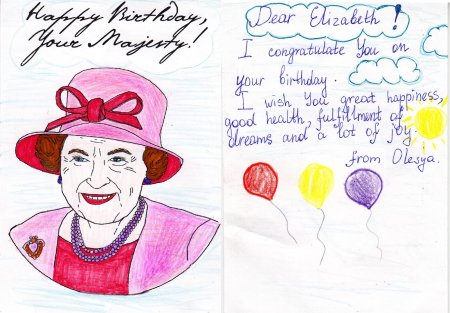 Happy Birthday,
Your Majesty!
Dear Elizabeth!
I congratulate You on
your birthday.
I wish You great happiness,
good health, fulfillment of
dreams and a lot of joy.
from Olesya.